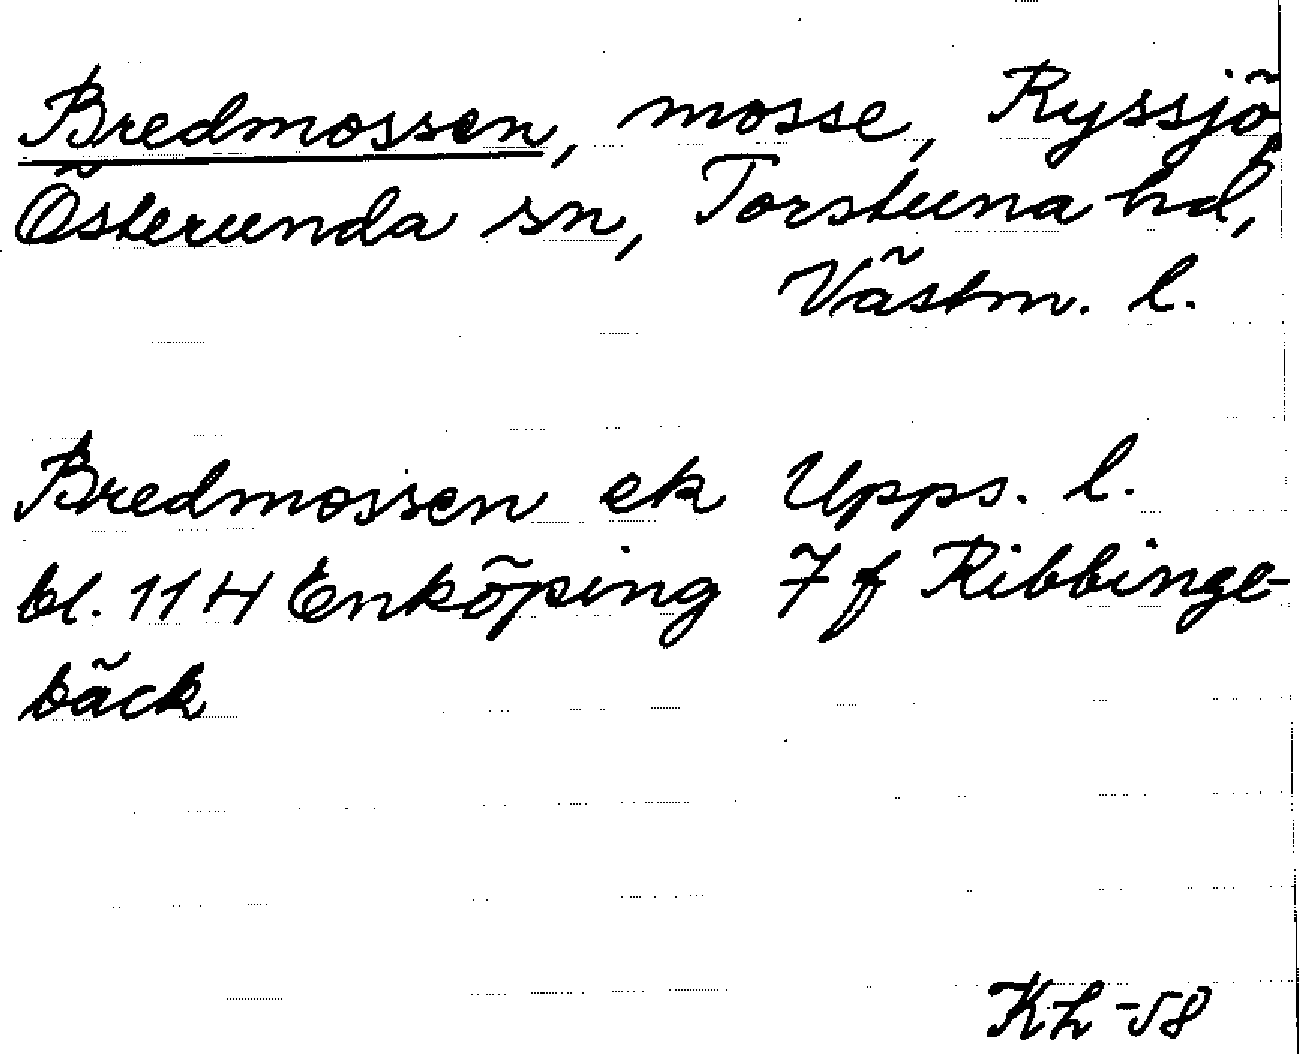 Bredmossen, mosse, Ryssjö,
Österunda sn, Torstuna hd,
Västm. l.
Bredmossen ek Upps. l.
bl. 114 Enköping 7 f Ribbinge-
bäck
Kh -58